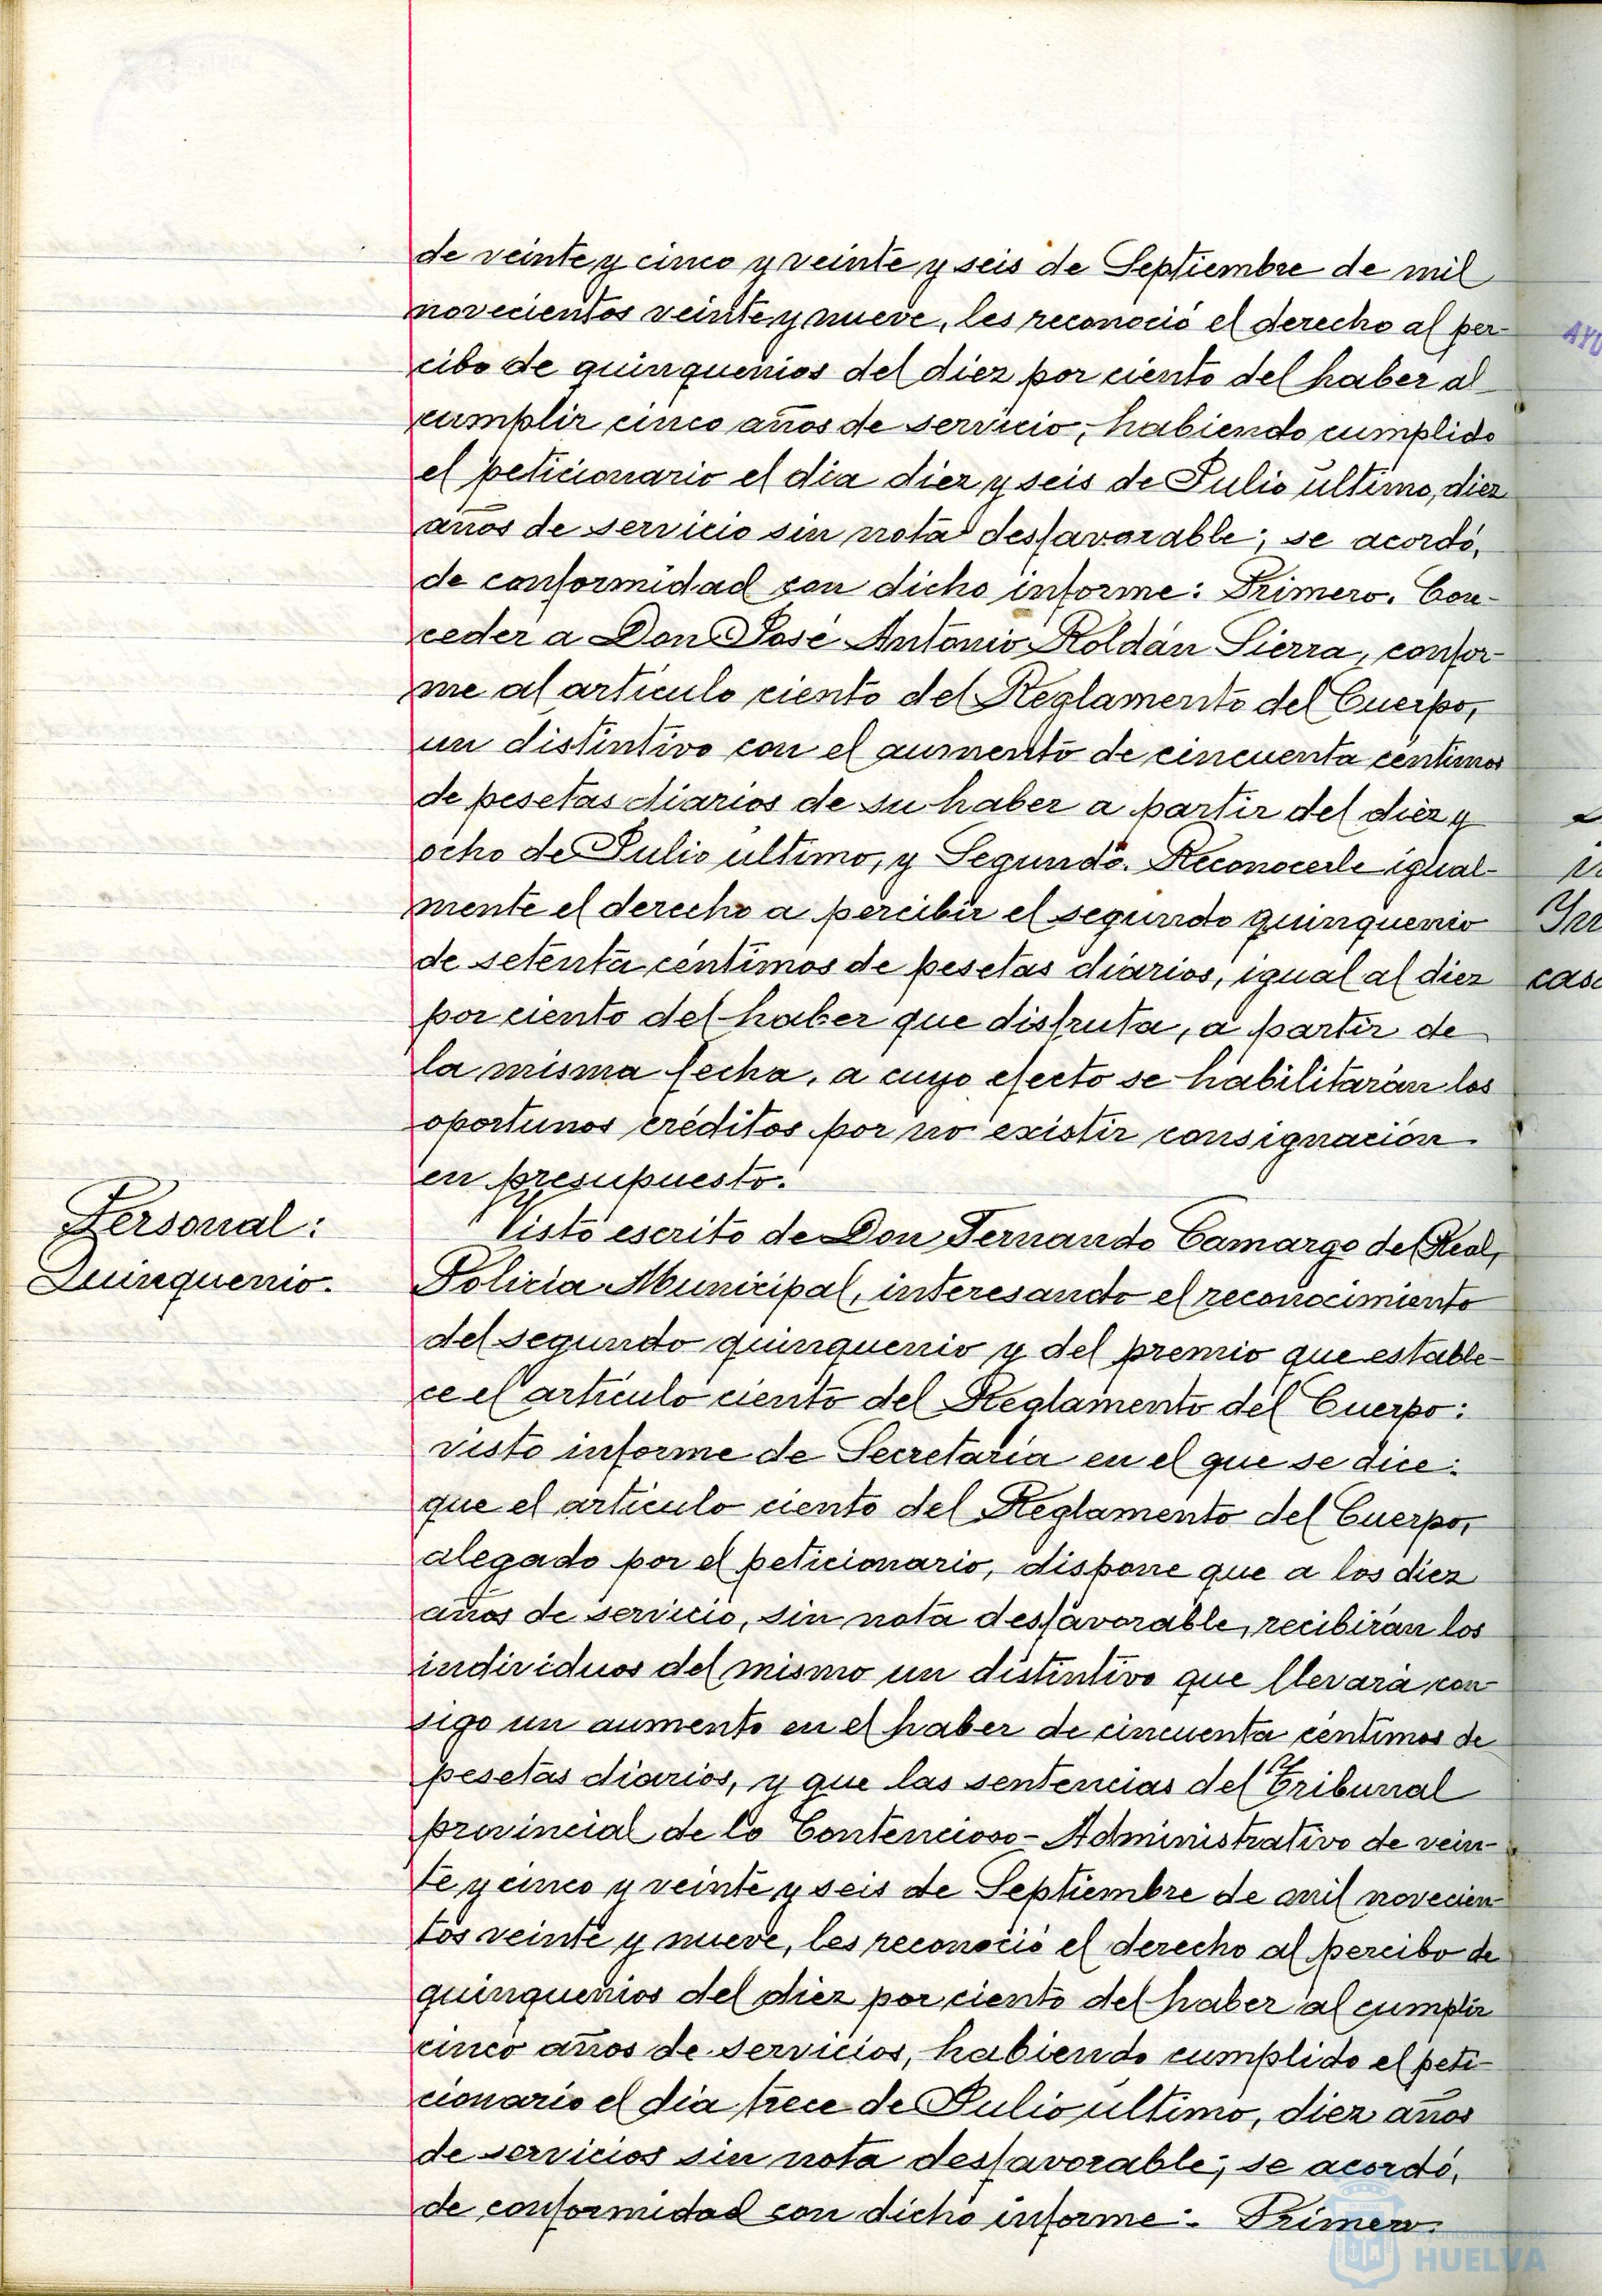 de veinte y cinco y veinte y seis de Septiembre de mil
novecientos veinte y nueve, les reconoció el derecho al per-
cibo de quinquenios del diez por ciento del haber al
cumplir cinco años de servicio; habiendo cumplido
el peticionario el día diez y seis de Julio último, diez
años de servicio sin nota desfavorable; se acordó,
de conformidad con dicho informe: Primero. Con-
ceder a Don José Antonio Roldán Sierra, confor-
me al artículo ciento del Reglamento del Cuerpo,
un distintivo con el aumento de cincuenta céntimos
de pesetas diarios de su haber a partir del diez y
ocho de Julio último, y Segundo. Reconocerle igual-
mente el derecho a percibir el segundo quinquenio
de setenta céntimos de pesetas diarios, igual al diez
por ciento del haber que disfruta, a partir de
la misma fecha, a cuyo efecto se habilitarán los
oportunos créditos por no existir consignación
en presupuesto.
Personal:
Quinquenio.
Visto escrito de Don Fernando Camargo del Real,
Policía Municipal, interesando el reconocimiento
del segundo quinquenio y del premio que estable-
ce el artículo ciento del Reglamento del Cuerpo:
visto informe de Secretaría en el que se dice:
que el artículo ciento del Reglamento del Cuerpo,
alegado por el peticionario, dispone que a los diez
años de servicio, sin nota desfavorable, recibirán los
individuos del mismo un distintivo que llevará con-
sigo un aumento en el haber de cincuenta céntimos de
pesetas diarios, y que las sentencias del Tribunal
provincial de lo Contencioso-Administrativo de vein-
te y cinco y veinte y seis de Septiembre de mil novecien-
tos veinte y nueve, les reconoció el derecho al percibo de
quinquenios del diez por ciento del haber al cumplir
cinco años de servicios, habiendo cumplido el peti-
cionario el día trece de Julio último, diez años
de servicios sin nota desfavorable; se acordó,
de conformidad con dicho informe:- Primero.
HUELVA